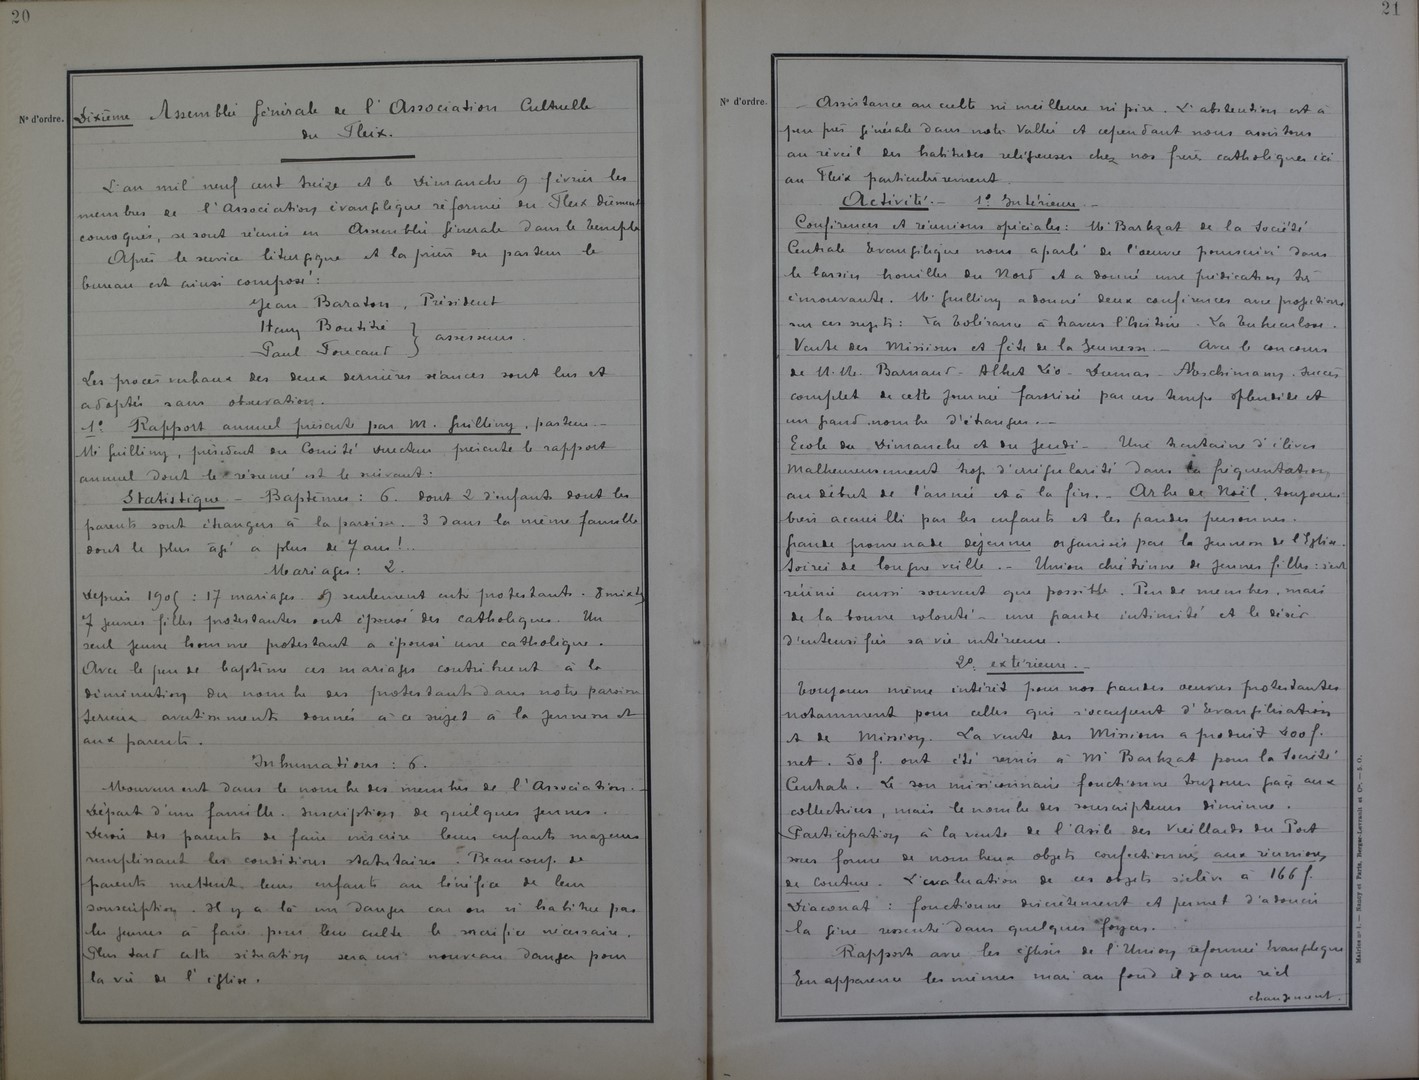 20
N° d'ordre.
Dixième Assemblée Générale de l'Association Cultuelle
du Fleix.
L'an mil neuf cent treize et le Dimanche 9 février les
membres de l'Association évangélique réformée du Fleix dûment
convoqués, se sont réunis en Assemblée générale dans le Temple
Après le service liturgique et la prière du pasteur le
bureau est ainsi composé :
Jean Baraton, Président
Henry Boutitié
Paul Foucaud } assesseurs.
Les procès verbaux des deux dernières séances sont lus et
adoptés sans observation.
1° Rapport annuel présenté par M. Guilliny, pasteur.-
Mr Guilliny, président du Comité Directeur présente le rapport
annuel dont le résumé est le suivant :
Statistique - Baptêmes : 6. dont 2 d'enfants dont les
parents sont étrangers à la paroisse. 3 dans la même famille
dont le plus âgé a plus de 7 ans !..
Mariages : 2.
Depuis 1905 : 17 mariages. 9 seulement entre protestants. 8 mixtes
7 jeunes filles protestantes ont épousé des catholiques. Un
seul jeune homme protestant a épousé une catholique.
Avec le peu de baptême ces mariages contribuent à la
diminution du nombre des protestants dans notre paroisse
Serieux avertissements donnés à ce sujet à la jeunesse et
aux parents.
Inhumations : 6.
Mouvement dans le nombre des membres de l'Association.-
Départ d'une famille. Inscription de quelques jeunes.
Devoir des parents de faire inscrire leurs enfants majeurs
remplissant les conditions statutaires. Beaucoup de
parents mettent leurs enfants au bénéfice de leur
souscription. Il y a là un danger car on n'habitue pas
les jeunes à faire pour leur culte le sacrifice nécessaire.
Plus tard cette situation sera un nouveau danger pour
la vie de l'église.
21
N° d'ordre.
Assistance au culte ni meilleure ni pire. L'abstention est à
peu près générale dans notre Vallée et cependant nous assistons
au réveil des habitudes religieuses chez nos frères catholiques ici
au Fleix particulièrement.
Activité.- 1° Intérieure.-
Conférences et réunions spéciales : Mr Barlzat de la Société
Centrale Evangélique nous a parlé de l'oeuvre poursuivie dans
le bassin houiller du Nord et a donné une prédication très
émouvante. Mr Guilliny a donné deux conférences avec projections
sur ces sujets : La tolérance à travers l'histoire. La tuberculose.
Vente des Missions et fête de la Jeunesse.- Avec le concours
de M.M. Barnaud - Albert Léo - Dumas - Aeschimann. Succès
complet de cette journée favorisée par un temps splendide et
un grand nombre d'étrangers.-
Ecole du Dimanche et du Jeudi- Une trentaine d'élèves
Malheureusement trop d'irrégularité dans la fréquentation
au début de l'année et à la fin.- Arbre de Noël, toujours
bien accueilli par les enfants et les grandes personnes.
Grande promenade déjeuner organisée par la jeunesse de l'Eglise.
Soirée de longue veille.- Union chrétienne de jeunes filles : s'est
réunie aussi souvent que possible. Peu de membres, mais
de la bonne volonté - une grande intimité et le désir
d'intensifier sa vie intérieure.
2° extérieure.-
Toujours même intérêt pour nos grandes oeuvres protestantes
notamment pour celles qui s'occupent d'Evangélisation
et de Mission. La vente des Missions a produit 400 f.
net. 50 f. ont été remis à Mr Barlzat pour la Société
Centrale. Le sou missionnaire fonctionne toujours grâce aux
collectrices, mais le nombre des souscripteurs diminue.
Participation à la vente de l'Asile des Vieillards du Port
sous forme de nombreux objets confectionnés aux réunions
de couture. L'évaluation de ces objets s'élève à 166 f.
Diaconat : fonctionne discrètement et permet d'adoucir
la gêne ressentie dans quelques foyers.
Rapport avec les églises de l'Union réformée Evangélique
En apparence les mêmes mais au fond il y a un réel
changement.
Mairies n° 1. — Nancy et Paris, Berger-Levrault et Cie. — S.O.